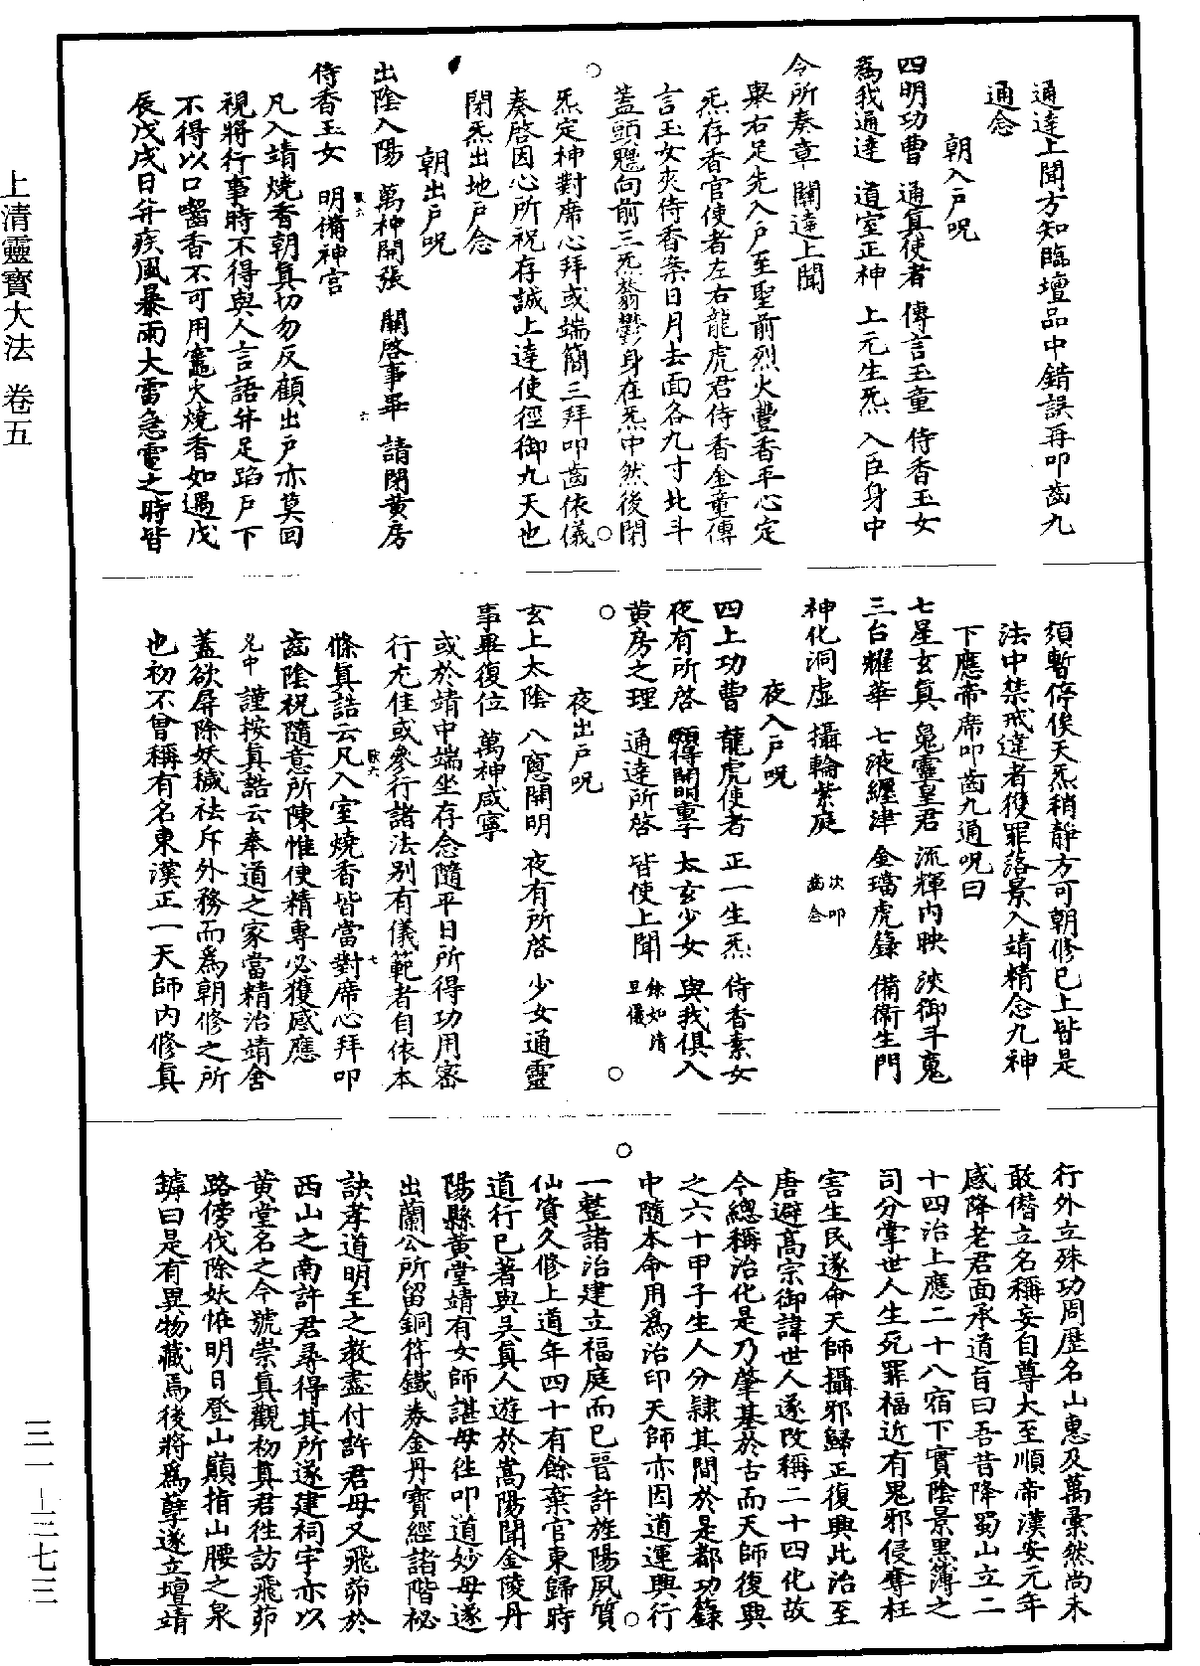 上清靈寶大法　卷五
通達上聞方知臨壇品中錯誤再叩齒九
通念
朝入戶呪
四明功曹　通真使者　傳言玉童　侍香玉女
為我通達　道室正神　上元生炁　入臣身中
令所奏章　關達上聞
舉右足先入戶至聖前烈火豐香平心定
炁存香官使者左右龍虎君侍香金童傳
言玉女夾侍香案日月去面各九寸北斗
蓋頭魒向前三炁蓊鬱身在炁中然後閉
炁定神對席心拜或端簡三拜叩齒依儀
奏啓因心所祝存誠上達使徑御九天也
閉炁出地戶念
朝出戶呪
出陰入陽　萬神開張　關啓事畢　請閉黃房
侍香玉女　明備神宮
凡入靖燒香朝真切勿反顧出戶亦莫回
視將行事時不得與人言語并足蹈戶下
不得以口嚙香不可用竈火燒香如遇戊
辰戊戌日并疾風暴雨大雷急電之時皆
須暫停俟天炁稍靜方可朝修已上皆是
法中禁戒違者獲罪落景入靖精念九神
下應帝席叩齒九通呪曰
七星玄真　鬼靈皇君　流輝內映　泱御斗魔
三台耀華　七液纏津　金璫虎籙　備衛生門
神化洞虛　攝輪紫庭　次叩齒念
夜入戶呪
四上功曹　龍虎使者　正一生炁　侍香素女
夜有所啓　願得開明童子　太玄少女　與我俱入
黃房之理　通達所啓　皆使上聞　餘如清旦儀
夜出戶呪
玄上太陰　八窻開明　夜有所啓　少女通靈
事畢復位　萬神咸寧
或於靖中端坐存念隨平日所得功用密
行尤佳或參行諸法別有儀範者自依本
條真誥云凡入室燒香皆當對席心拜叩
齒陰祝隨意所陳惟使精專必獲感應
謹按真誥云奉道之家當精治靖舍
蓋欲屏除妖穢祛斥外務而為朝修之所
也初不曾稱有名東漢正一天師內修真
行外立殊功周歷名山惠及萬彙然尚未
敢僭立名稱妄自尊大至順帝漢安元年
感降老君面承道旨曰吾昔降蜀山立二
十四治上應二十八宿下實陰景黑簿之
司分掌世人生死罪福近有鬼邪侵奪枉
害生民遂命天師攝邪歸正復興此治至
唐避高宗御諱世人遂改稱二十四化故
今總稱治化是乃肇基於古而天師復興
之六十甲子生人分隸其間於是都功籙
中隨本命用為治印天師亦因道運興行
一整諸治建立福庭而已晉許旌陽夙質
仙資久修上道年四十有餘棄官東歸時
道行已著與吳真人遊於嵩陽聞金陵丹
陽縣黃堂靖有女師諶母往叩道妙母遂
出蘭公所留銅符鐵券金丹寶經諸階祕
訣孝道明王之教盡付許君母又飛茆於
西山之南許君尋得其所遂建祠宇亦以
黃堂名之今號崇真觀初真君往訪飛茆
路傍伐除妖恠明日登山巔指山腰之泉
罅曰是有異物藏焉後將為孽遂立壇靖
三一—三七三